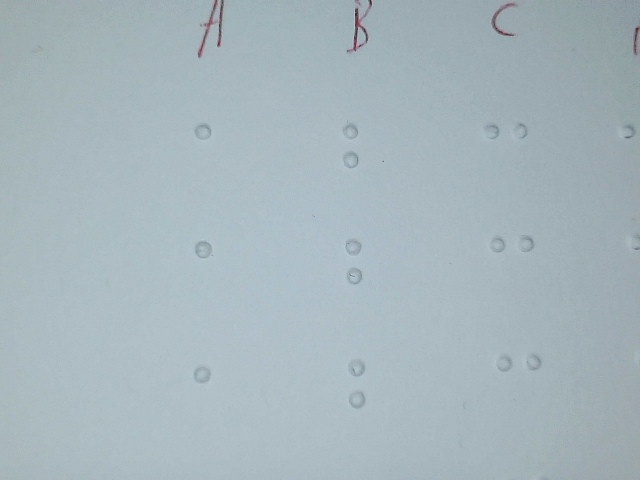 A B C
⠁ ⠃ ⠉
⠁ ⠃ ⠉
⠁ ⠃ ⠉